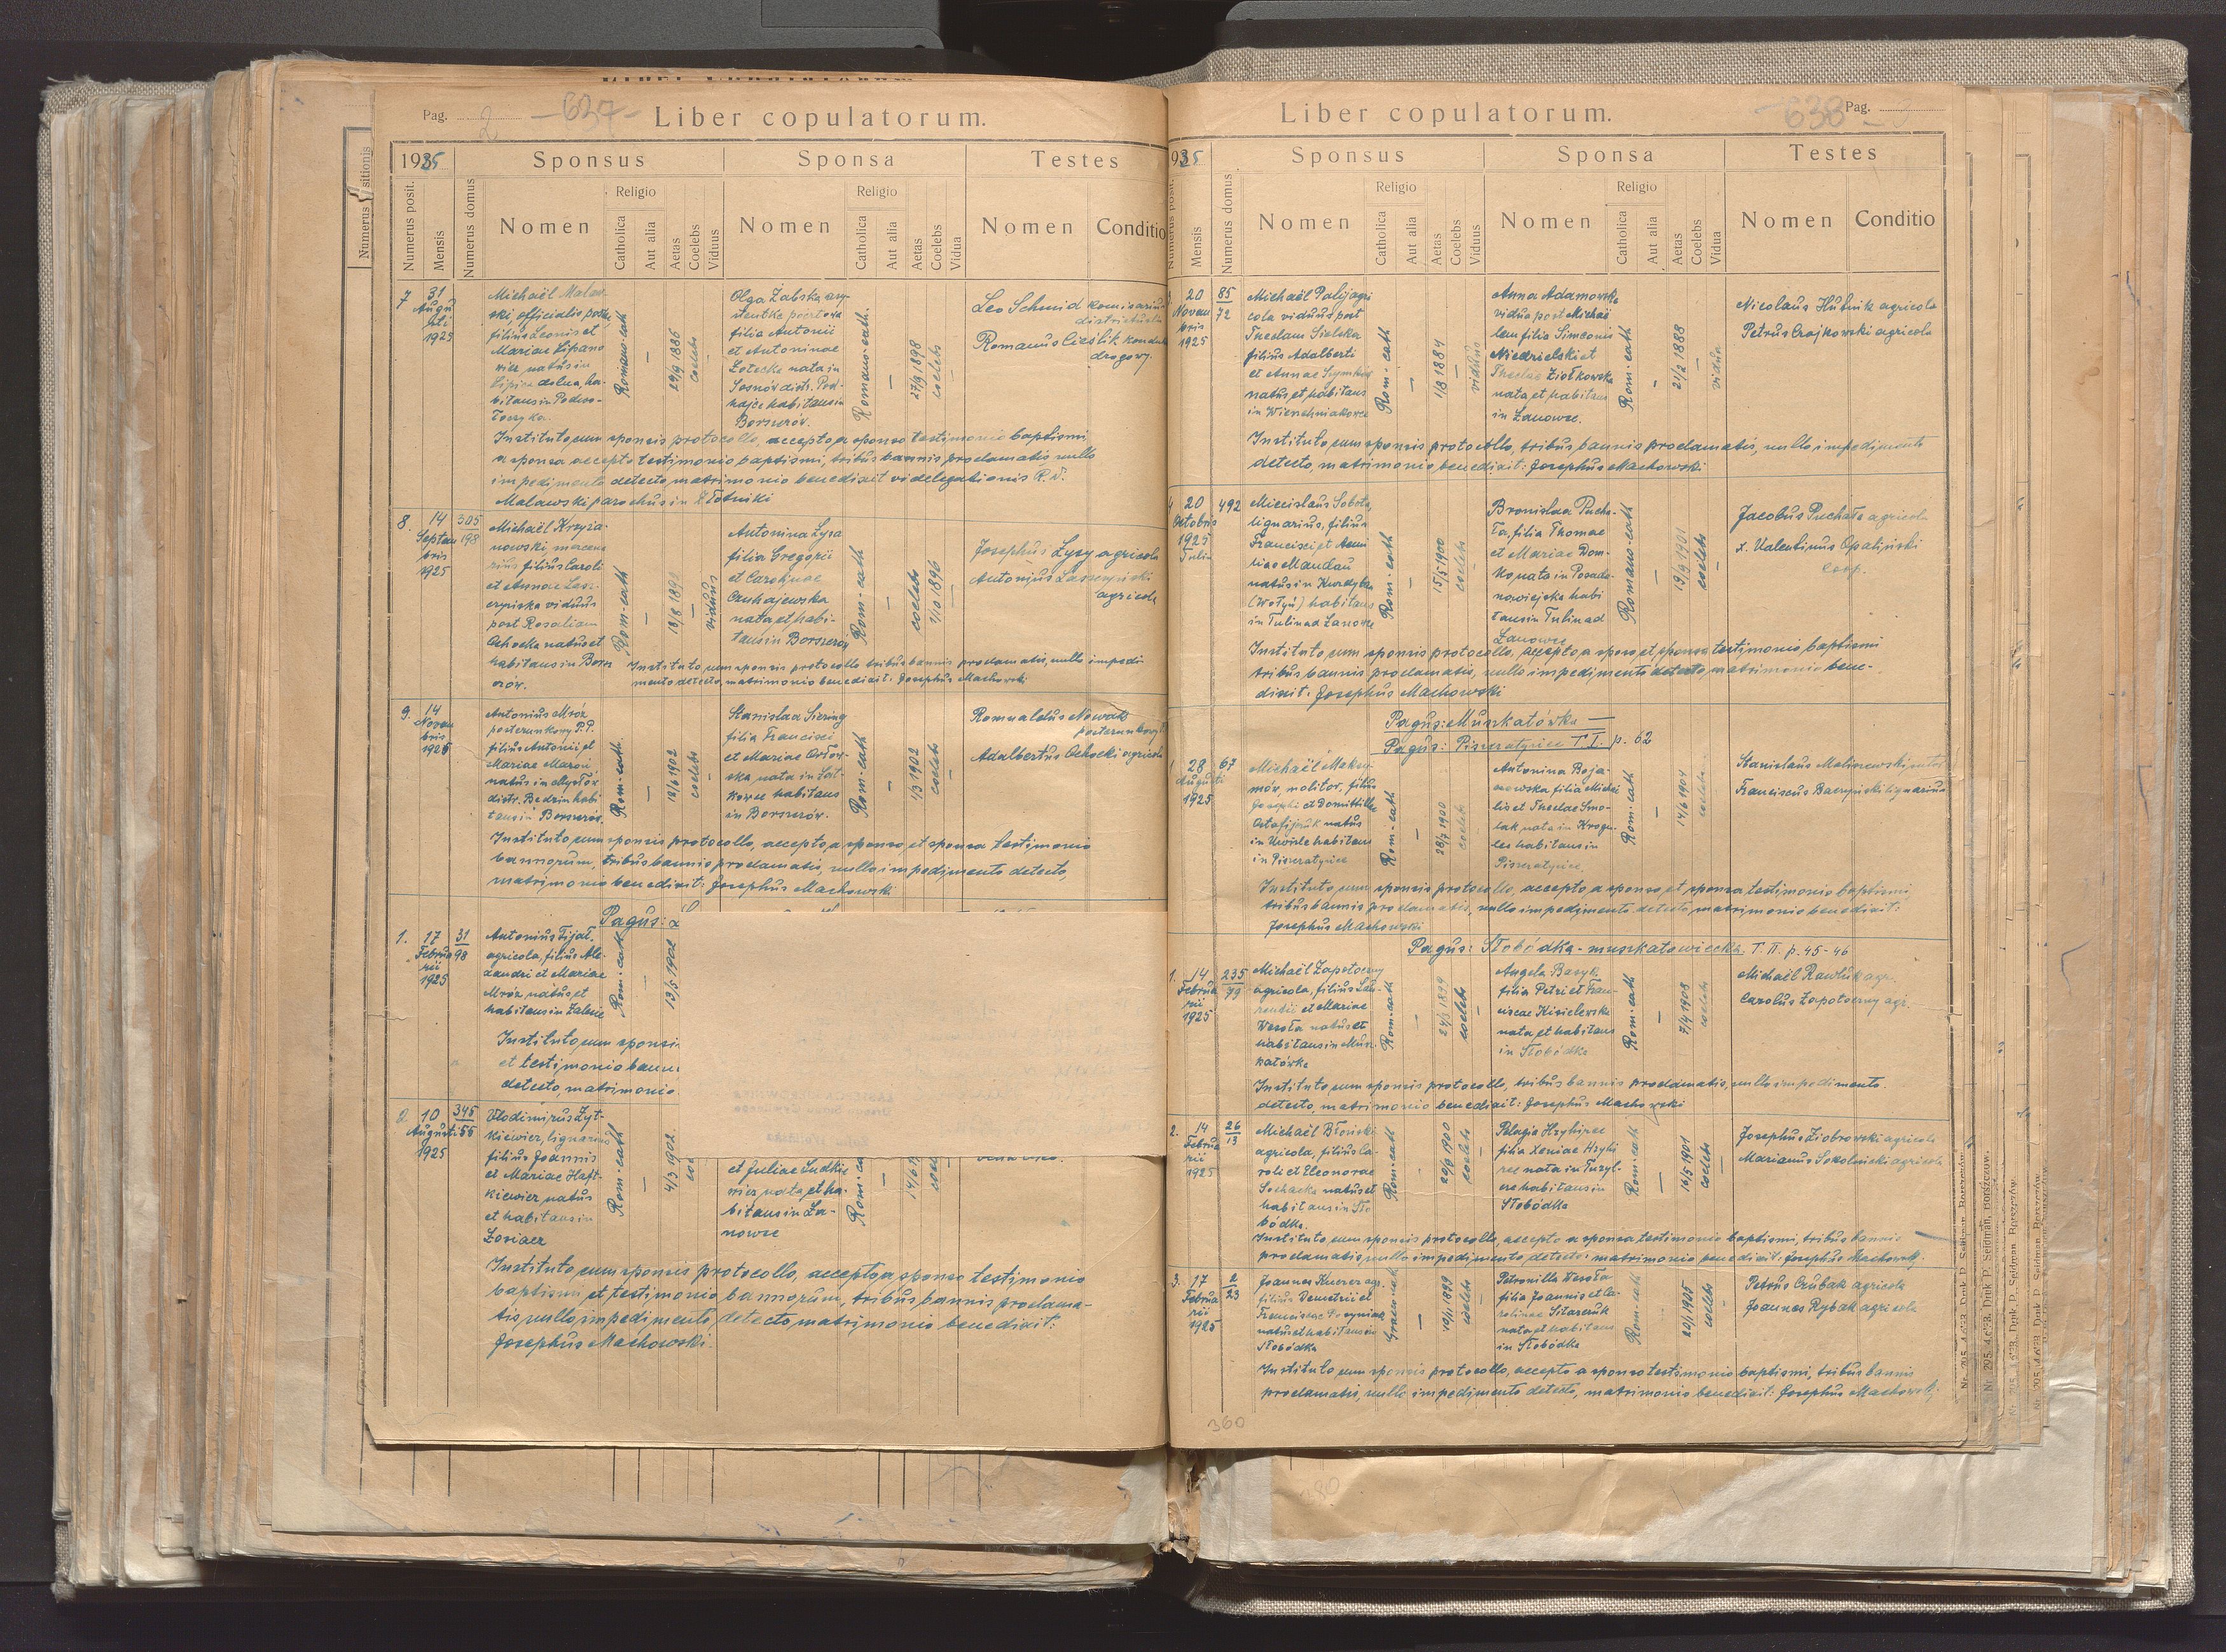 Pag. 2 -637- Liber copulatorum.
1925 Sponsus Sponsa Testes
Numerus posit. Mensis Numerus domus Nomen Religio Catholica Aut alia Aetas Coelebs Viduus Nomen Religio Catholica Aut alia Aetas Coelebs Vidua Nomen Conditio
7 31 Augusti 1925
Michaël Malaw-
ski, officialis
filius Leonis et
Mariae Lipano
wicz natus in
Lipica dolna, ha-
bitans in Podwo-
łoczyka.
Romano-cath — 29/9 1886 coelebs
Olga Żabska asy-
stentka pocztowa
filia Antonii
et Antoninae
Zotecka nata in
Sosnów distr. Pod-
hajce habitans in
Borszczów.
Romano-cath. — 27/9 1898 coelebs —
Leo Schmid komisarius
Romanus Cieślik
drogowy.
Instituto cum sponsis protocollo, accepto a sponso testimonio baptismi,
a sponsa accepto testimonio baptismi, tribus bannis proclamatis nullo
impedimento detecto, matrimonio benedixit vi delegationis R. d.
Malawski parochus in Złotniki
8. 14 Septembris 1925 305 198
Michaël Krzyża-
nowski, mercena
rius filius Caroli
et Annae
viduus
post Rosaliam
Ochocka natus et
habitans in Borsz
czów.
Rom-cath — 18/8 — viduus
Antonina Łysa
filia Gregorii
et Carolinae
Czuhajewska
nata et habi-
tans in Borszczów
Rom-cath — coelebs 2/10 1896 —
Josephus Łysy agricola
Antonius
agricola
Instituto cum sponsis protocollo tribus bannis proclamatis, nullo impedi
mento detecto, matrimonio benedixit: Josephus Machowski
9. 14 Novembris 1925
Antonius Mróz
posterunkowy P.P.
filius Antonii et
Mariae Maroń
natus in Mysłów
distr. Będzin habi
tans in Borszczów.
Rom-cath. — 12/6 1902 coelebs —
Stanislaa Siering
filia Francisci
et Mariae Orłow-
ska nata in Łat-
kowce habitans
in Borszczów.
Rom-cath — 1/3 1902 coelebs —
Romualdus Nowak
posterunkowy
Adalbertus Ochocki agricola
Instituto cum sponsis protocollo, accepto a sponso et sponsa testimonio
bannorum, tribus bannis proclamatis, nullo impedimento detecto,
matrimonio benedixit: Josephus Machowski
Pagus:
1. 17 Februarii 1925 31 98
Antonius Fijał,
agricola, filius Ale-
xandri et Mariae
Mróz natus et
habitans in Zalesie
Rom-cath — 13/5 1902
Instituto cum sponsis
et testimonio bann
detecto, matrimonio
2. 10 Augusti 1925 345 55
Vlodimirus Żyt-
kiewicz, lignarius
filius Joannis
et Mariae Haft-
kiewicz natus
et habitans in
Rom-cath — 4/3 1902
et Juliae Ludkie
wicz nata et ha-
bitans in Ła-
nowce
Rom-ca — 14/6
Instituto cum sponsis protocollo, accepto a sponso testimonio
baptismi et testimonio bannorum, tribus bannis proclama-
tis, nullo impedimento detecto matrimonio benedixit:
Josephus Machowski.
Liber copulatorum. -638- Pag. 3
1925 Sponsus Sponsa Testes
Numerus posit. Mensis Numerus domus Nomen Religio Catholica Aut alia Aetas Coelebs Viduus Nomen Religio Catholica Aut alia Aetas Coelebs Vidua Nomen Conditio
20 Novembris 1925 85 72
Michaël Palij agri
cola viduus post
Theclam Sielska
filius Adalberti
et Annae
natus et habitans
in Wierzchniakowce
Rom-cath — 1/8 1884 — viduus
Anna Adamowska
vidua post Michaë
lem filia Simeonis
Niedzielski et
Theclae Ziołkowska
nata et habitans
in Łanowce.
Rom-cath — 21/2 1888 — vidua
Nicolaus Hubnik agricola
Petrus Czajkowski agricola
Instituto cum sponsis protocollo, tribus bannis proclamatis, nullo impedimento
detecto, matrimonio benedixit: Josephus Machowski
4 20 Octobris 1925 492
Miecislaus Sobota,
lignarius, filius
Francisci et Aemi
liae Mandau
natus in Kurdyban
(Wołyń) habitans
in Tulin ad Łanowce
Rom-cath — 15/5 1900 coelebs —
Bronislaa Pucha-
ła, filia Thomae
et Mariae Dom-
ka nata in Posada-
nowiejska habi
tans in Tulin ad
Łanowce
Romano-cath — 19/9 1901 coelebs —
Jacobus Puchała agricola
X. Valentinus Opaliński
Coop.
Instituto cum sponsis protocollo, accepto a sponso et sponsa testimonio baptismi
tribus bannis proclamatis, nullo impedimento detecto, matrimonio bene-
dixit: Josephus Machowski
Pagus: Muszkatówka —
Pagus: Piszczatyńce T. I. p. 62
1 28 Augusti 1925 67
Michaël
molitor, filius
Josephi et Domitillae
Ostafijczuk natus
in Uwisła habitans
in Piszczatyńce
Rom-cath — 28/7 1900 coelebs
Antonina Boja-
nowska filia Micha
lis et Theclae Smo-
lak nata in Krogu-
lec habitans in
Piszczatyńce
Rom-cath — 14/6 1904 coelebs
Stanislaus Maliszewski
Franciscus Baczyński lignarius
Instituto cum sponsis protocollo, accepto a sponso et sponsa testimonio baptismi
tribus bannis proclamatis, nullo impedimento detecto, matrimonio benedixit:
Josephus Machowski
Pagus: Słobódka-muszkatowiecka. T. II. p. 45-46
1. 14 Februarii 1925 235 79
Michaël Zapotoczny
agricola, filius Lau-
rentii et Mariae
Wesoła natus et
habitans in Musz-
katówka
Rom-cath — 24/3 1899 coelebs —
Angela Basyk
filia Petri et Fran-
ciscae Kisielewska
nata et habitans
in Słobódka
Rom-cath — 7/4 1908 coelebs
Michaël Rawluk agr.
Carolus Zapotoczny agr.
Instituto cum sponsis protocollo, tribus bannis proclamatis, nullo impedimento
detecto, matrimonio benedixit: Josephus Machowski
2. 14 Februarii 1925 26 13
Michaël Błoński
agricola, filius Ca-
roli et Eleonorae
Sochacka natus et
habitans in Sło
bódka.
Rom-cath — 20/9 1900 coelebs —
Pelagia Hryhirec
filia Xeniae Hryhi
rec nata in Turyl-
cze habitans in
Słobódka
Rom-cath — 16/5 1901 coelebs —
Josephus Ziobrowski agricola
Marianus Sokolnicki agricola
Instituto cum sponsis protocollo, accepto a sponsa testimonio baptismi, tribus bannis
proclamatis, nullo impedimento detecto matrimonio benedixit: Josephus Machowski.
3. 17 Februarii 1925 2 23
Joannes Kuczer agr.
filius Demetrii et
Franciscae
natus et habitans in
Słobódka
Graeco-cath — 10/1 1899 coelebs —
Petronilla Wesoła
filia Joannis et Ca-
rolinae Sitarczuk
nata et habitans
in Słobódka
Rom-cath — 20/1 1905 coelebs —
Petrus Czubak agricola
Joannes Rybak agricola
Instituto cum sponsis protocollo, accepto a sponso testimonio baptismi, tribus bannis
proclamatis, nullo impedimento detecto, matrimonio benedixit: Josephus Machowski.
360